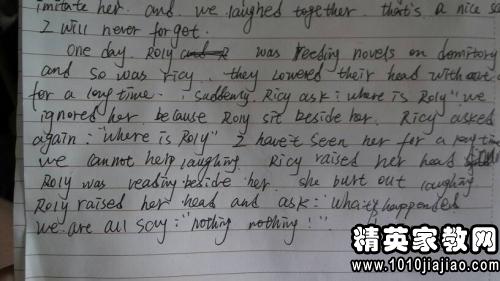 imitate her. and we laughed together. that's a nice
I will never forget.
One day Roly was reeding novels on domitory
and so was ricy. they lowered their head without
for a long time. suddenly Ricy ask: where is Roly" we
ignored her because Roly sit beside her. Ricy asked
again: "where is Roly" I have't seen her for a long time
we cannot help laughing. Ricy raised her head
Roly was reading beside her. she burt out laughing
Roly raised her head and ask: "What's happened
we are all say: "nothing nothing!"
精英家教网
www.1010jiajiao.com